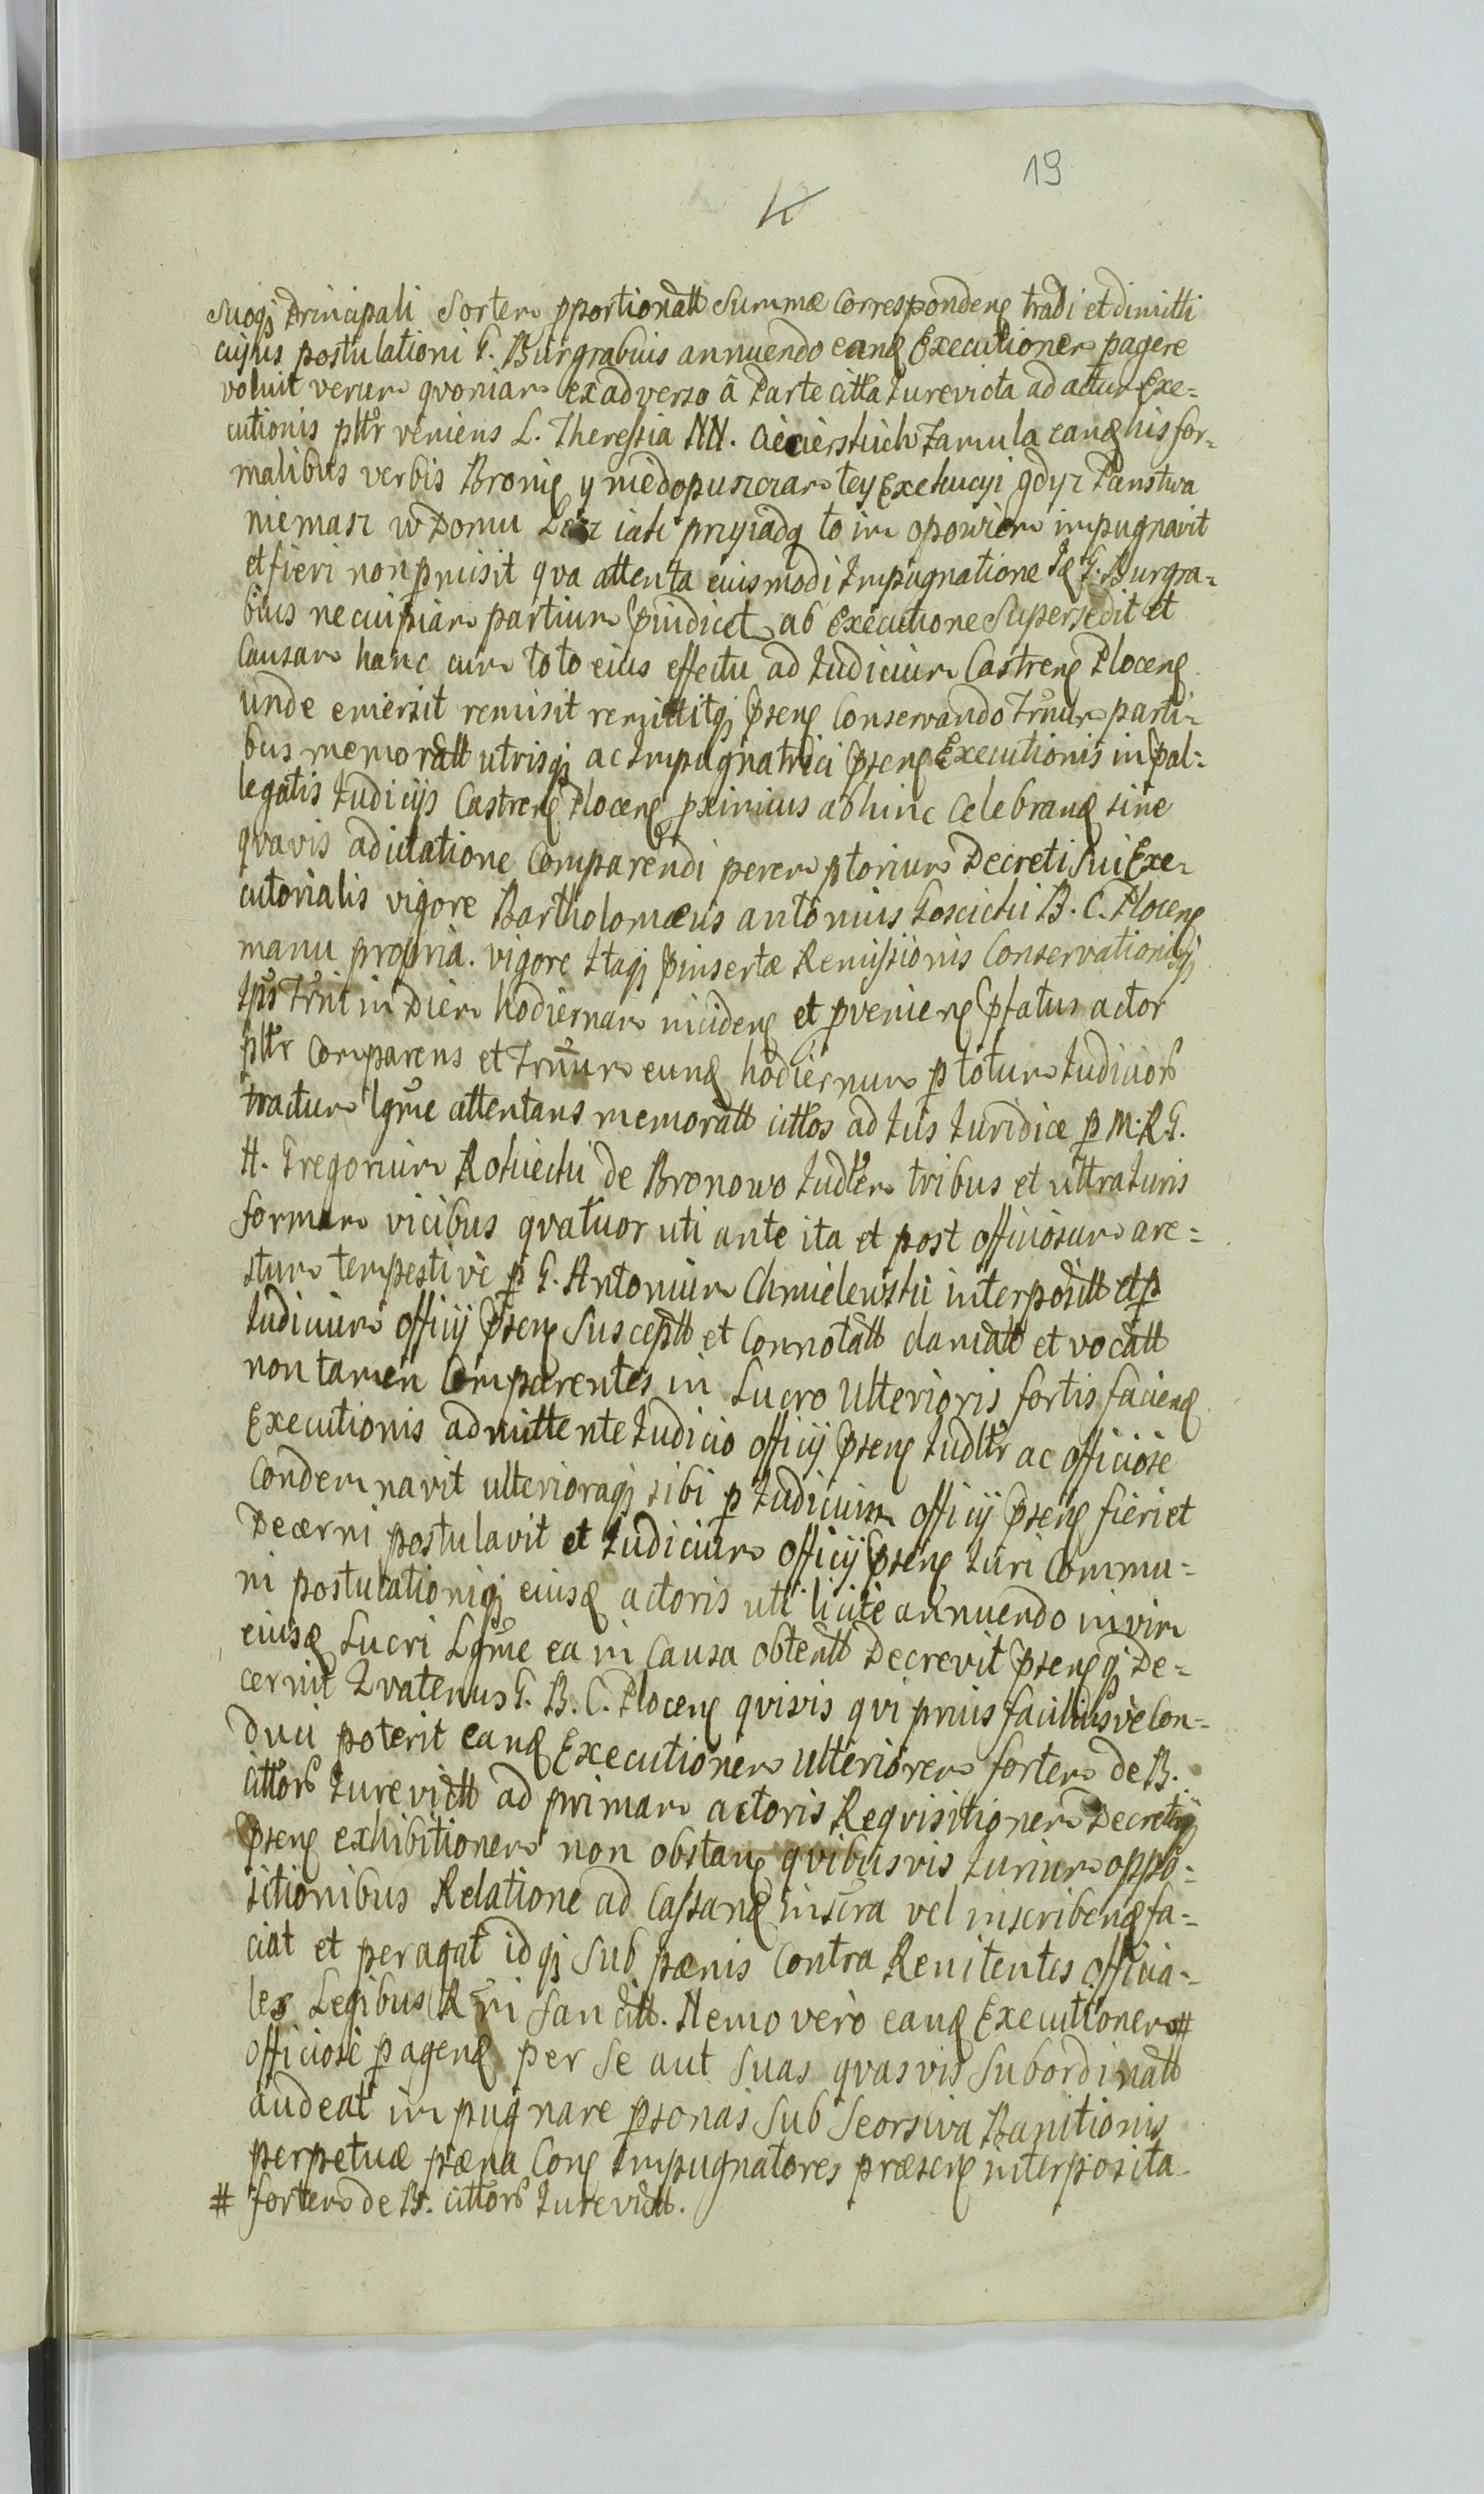 19
suoqȝ Principali Sortem pportionatt Summæ Corresponden tradi et dimitti
cujus postulationi G. Burgrabius annuendo eand Executionem pagere
voluit verum qvoniam ex adverso â Parte citta Jurevicta ad actum Exe=
cutionis pltr veniens L. Theressia NN. Famula eand his for=
malibus verbis Bronię y niedopuszczam tey Exekucyi gdyz Panstwa
niemasz w Domu Lecz iak przyiadą to im opowiem impugnavit
et fieri non pmisit qva attenta eiusmodi Impugnatione Id G. Burgra=
bius ne cuipiam partium pjudicet ab Executione Supersedit et
Causam hanc cum toto eius effectu ad Judicium Castren Plocen
unde emersit remisit remittitqȝ psen Conservando Trnum parti=
bus memoratt utrisqȝ ac Impugnatrici psen Executionis in pal=
legatis Judicijs Castren Plocen pximius abhinc Celebrand sine
qvavis adcitatione Comparendi peremptorium Decreti Sui Exe=
cutorialis vigore Bartholomæus Antonius Goscicki B. C. Plocen
manu propria. vigore Itaqȝ pinsertæ Remissionis Conservationisqȝ
Ips Trni in Diem hodiernam inciden et pvenien pfatus actor
pltr Comparens et Trnum eund hodiernum p totum Judicior
tractum lgme attentans memoratt cittos ad Jus Juridice p M. R. G.
H. Gregorium Rokicki de Bronowo Judlem tribus et ultra Juris
formam vicibus qvatuor uti ante ita et post officiosam are=
stum tempestive p G. Antonium Chmielewski interpositt et p
Judicium officij psen Susceptt et Connotatt clamatt et vocatt
non tamen Comparentes in Lucro Ulterioris fortis faciend
Executionis admittente Judicio officij psen Judltr ac officiose
Condemnavit ulterioraqȝ sibi p Judicium officij psen fieri et
Decerni postulavit et Judicium officij psen Juri Commu=
ni postulationiqȝ eiusd actoris uti licite annuendo in vim
eiusd Lucri Lgme ea in Causa obtentt Decrevit psenqȝ De=
cernit Qvatenus G. B. C. Plocen qvivis qvi prius faciliusve Con=
duci poterit eand Executionem Ulteriorem fortem de B.
cittor Jurevictt ad primam actoris Reqvisitionem Decretiqȝ
psen exhibitionem non obstan qvibusvis Jurium oppo=
sitionibus Relatione ad Cassand inscra vel inscribend fa=
ciat et peragat idqȝ Sub pænis Contra Renitentes officia=
les Legibus Rni Sancitt. Nemo verò eand Executionem #
officiose pagend per Se aut Suas qvasvis Subordinatt
audeat impugnare psonas Sub Seorsiva Banitionis
perpetuæ pæna Con Impugnatores præsen interposita
# fortem de B. cittor Jurevictt.